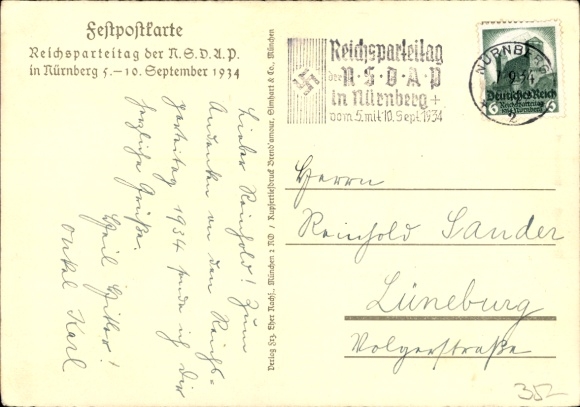 Festpostkarte
Reichsparteitag der N.S.D.A.P.
in Nürnberg 5.–10. September 1934
Lieber Reinhold! Zum
Andenken an den Reichs-
parteitag 1934 sende ich Dir
herzliche Grüße.
Heil Hitler!
Onkel Karl
Verlag Frz. Eher Nachf., München 2 NO / Kupfertiefdruck Brend'amour, Simhart & Co., München
Reichsparteitag
der N·S·D·A·P
in Nürnberg +
vom 5. mit 10. Sept. 1934
NÜRNBERG
9.34
2
Deutsches Reich
6 Reichsparteitag 6
Nürnberg
Herrn
Reinhold Sander
Lüneburg
Volgerstraße
35-